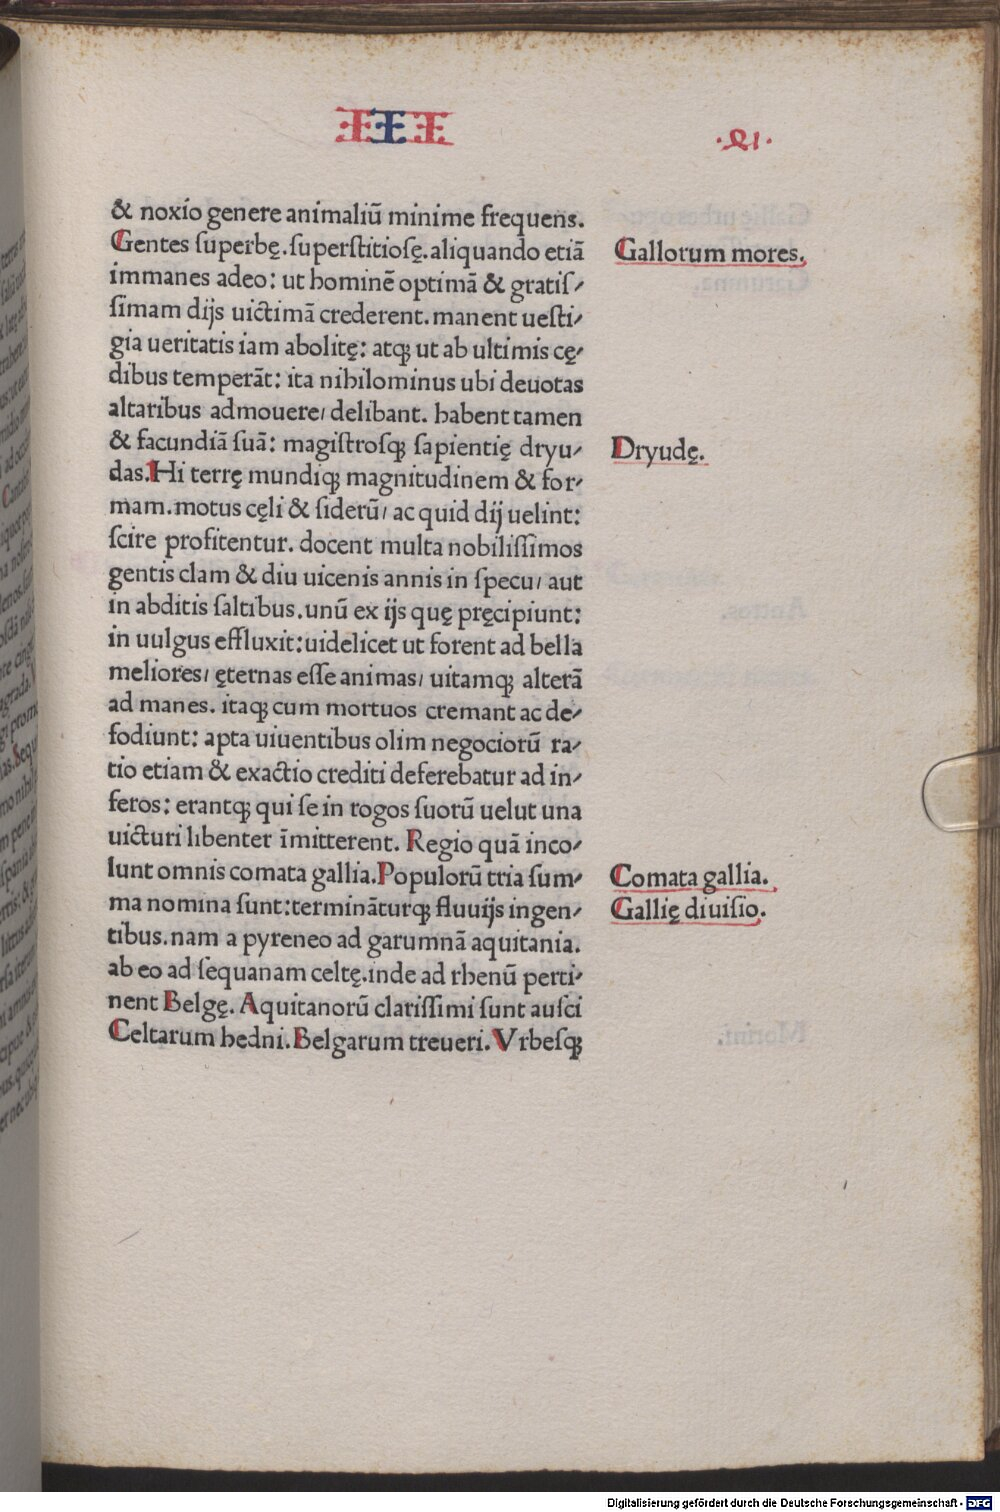 III
& noxio genere animaliū minime frequens.
Gentes ſuperbę.ſuperſtitioſę.aliquando etiā
immanes adeo: ut hominē optimā & gratiſ⸗
ſimam dijs uictimā crederent.manent ueſti⸗
gia ueritatis iam abolitę: atqꝫ ut ab ultimis cę⸗
dibus temperāt: ita nihilominus ubi deuotas
altaribus admouere/ delibant. habent tamen
& facundiā ſuā: magiſtroſqꝫ ſapientię dryu⸗
das.Hi terrę mundiqꝫ magnitudinem & for⸗
mam.motus cęli & ſiderū/ ac quid dij uelint:
ſcire profitentur. docent multa nobiliſſimos
gentis clam & diu uicenis annis in ſpecu/ aut
in abditis ſaltibus.unū ex ijs quę pręcipiunt:
in uulgus effluxit:uidelicet ut forent ad bella
meliores/ ęternas eſſe animas/ uitamqꝫ alterā
ad manes. itaqꝫ cum mortuos cremant ac de⸗
fodiunt: apta uiuentibus olim negociorū ra⸗
tio etiam & exactio crediti deferebatur ad in⸗
feros: erantqꝫ qui ſe in rogos ſuorū uelut una
uicturi libenter īmitterent. Regio quā inco⸗
lunt omnis comata gallia.Populorū tria ſum⸗
ma nomina ſunt:termināturqꝫ fluuijs ingen⸗
tibus.nam a pyreneo ad garumnā aquitania.
ab eo ad ſequanam celtę.inde ad rhenū perti⸗
nent Belgę. Aquitanorū clariſſimi ſunt auſci
Celtarum hedni.Belgarum treueri.Vrbeſqꝫ
Gallorum mores.
Dryudę.
Comata gallia.
Gallię diuiſio.
Digitalisierung gefördert durch die Deutsche Forschungsgemeinschaft - DFG